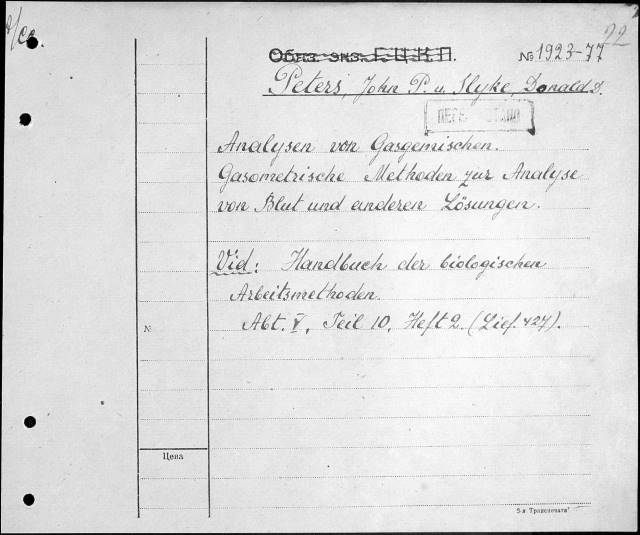 22
Обяз. экз. Г.Ц.К.П.
№ 1923-77
Peters, John P. u. Slyke, Donald D.
Analysen von Gasgemischen.
Gasometrische Methoden zur Analyse
von Blut und anderen Lösungen.
Vid: Handbuch der biologischen
Arbeitsmethoden.
Abt. V, Teil 10, Heft 2. (Lief. 427).
№
Цена